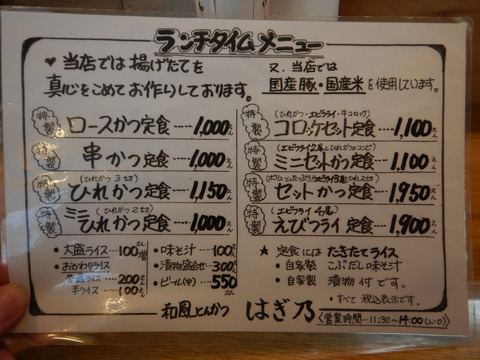 ランチタイムメニュー
♥当店では揚げたてを
真心をこめてお作りしております。
又、当店では
国産豚・国産米を使用しています。
特製 ロースかつ定食----1,000えん
特製 串かつ定食----1,000えん
(ひれかつ3切)
特製 ひれかつ定食---1,150えん
(ひれかつ2切)
特製 ミニひれかつ定食---1,000えん
(ひれかつ・エビフライ・牛コロッケ)
特製 コロッケセット定食----1,100えん
特製 ミニセットかつ定食----1,100えん
特製 セットかつ定食---1,950えん
(エビフライ4尾)
特製 えびフライ定食---1,900えん
・大盛ライス---100えん増
・おかわりライス
普通ライス---200えん
半ライス---100えん
・味そ汁---100えん
・漬物盛合せ---300えん
・ビール(中)---550えん
★定食にはたきたてライス
・自家製 こぶだし味そ汁
・自家製 漬物付です。
・すべて税込表示です。
和風とんかつ はぎ乃
営業時間---11:30~14:00(L.O)